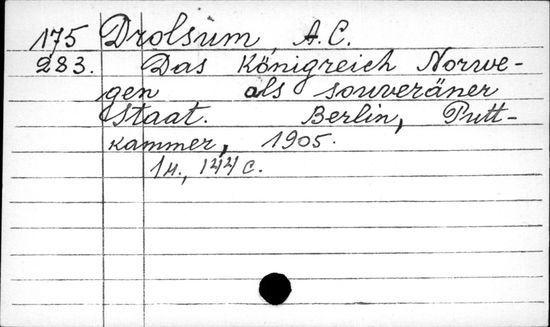 175 Drolsum, A.C.
283. Das Königreich Norwe-
gen als souveräner
Staat. Berlin, Putt-
kammer, 1905.
1н., 144 с.